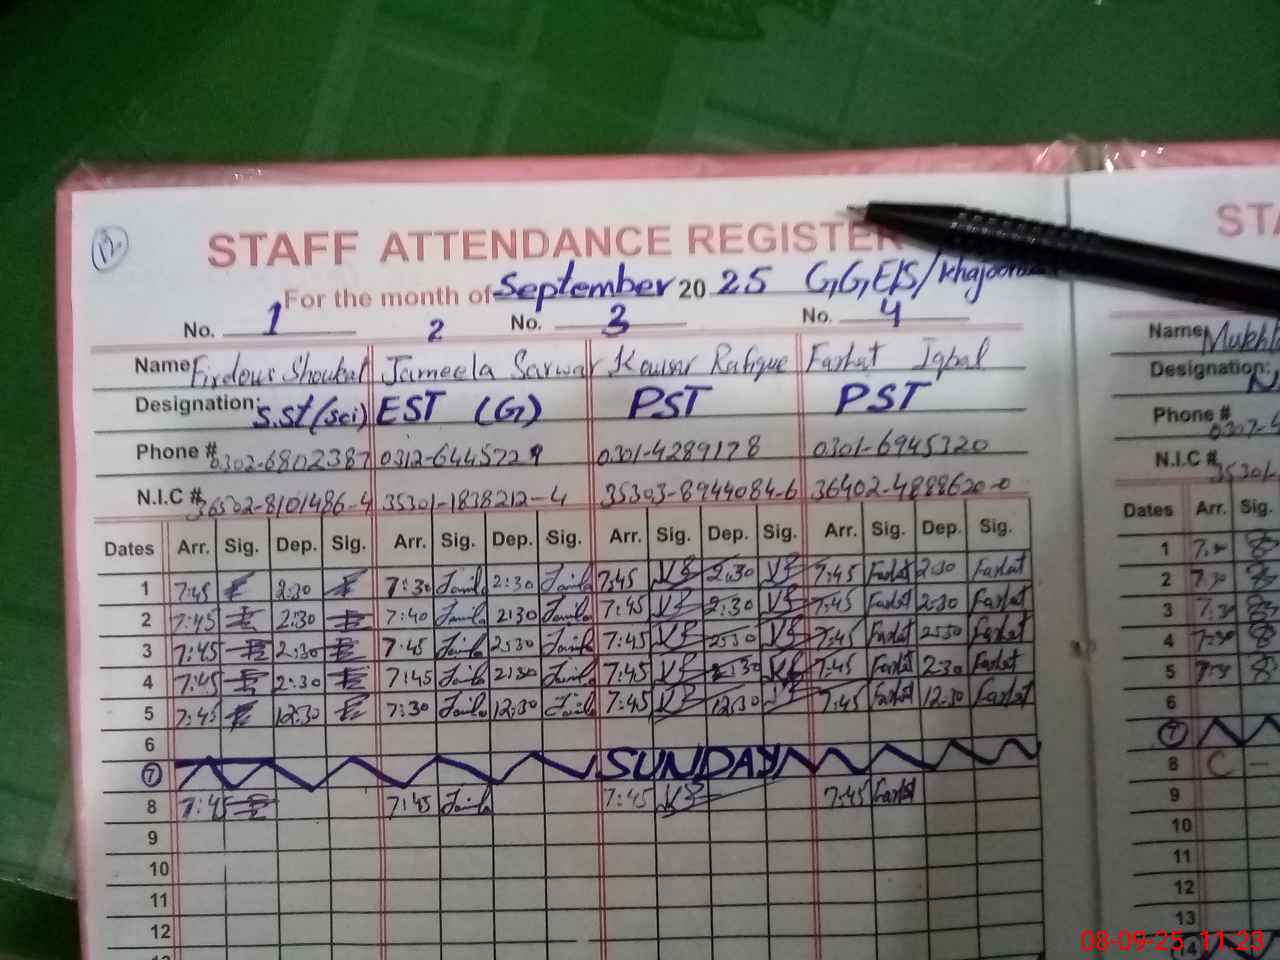 17.
STAFF ATTENDANCE REGISTER
For the month of September 2025 G,G,E/S/
No. 1 2 No. 3 No. 4
Name Firdous Shoukat Jameela Sarwar Kousar Rafique Farhat Iqbal
Designation: S.St (sci) EST (G) PST PST
Phone # 0302-6802387 0312-6445729 0301-4289178 0301-6945320
N.I.C # 36502-8101486-4 35301-1838212-4 35303-8944084-6 36402-4888620-0
Dates Arr. Sig. Dep. Sig. Arr. Sig. Dep. Sig. Arr. Sig. Dep. Sig. Arr. Sig. Dep. Sig.
1 7:45 2:30 7:30 Jamila 2:30 Jamila 7:45 KB 2:30 KB 7:45 Farhat 2:30 Farhat
2 7:45 2:30 7:40 Jamila 2:30 Jamila 7:45 KB 2:30 KB 7:45 Farhat 2:30 Farhat
3 7:45 2:30 7:45 Jamila 2:30 Jamila 7:45 KB 2:30 KB 7:45 Farhat 2:30 Farhat
4 7:45 2:30 7:45 Jamila 2:30 Jamila 7:45 KB 2:30 KB 7:45 Farhat 2:30 Farhat
5 7:45 12:30 7:30 Jamila 12:30 Jamila 7:45 KB 12:30 7:45 Farhat 12:30 Farhat
6
7 SUNDAY
8 7:45 7:45 Jamila 7:45 KB 7:45 Farhat
9
10
11
12
STA
Name
Designation:
Phone #
N.I.C #
Dates Arr. Sig.
1
2 7:30
3 7:30
4 7:30
5 7:30
6
7
8 C –
9
10
11
12
13
14
08-09-25 11:23